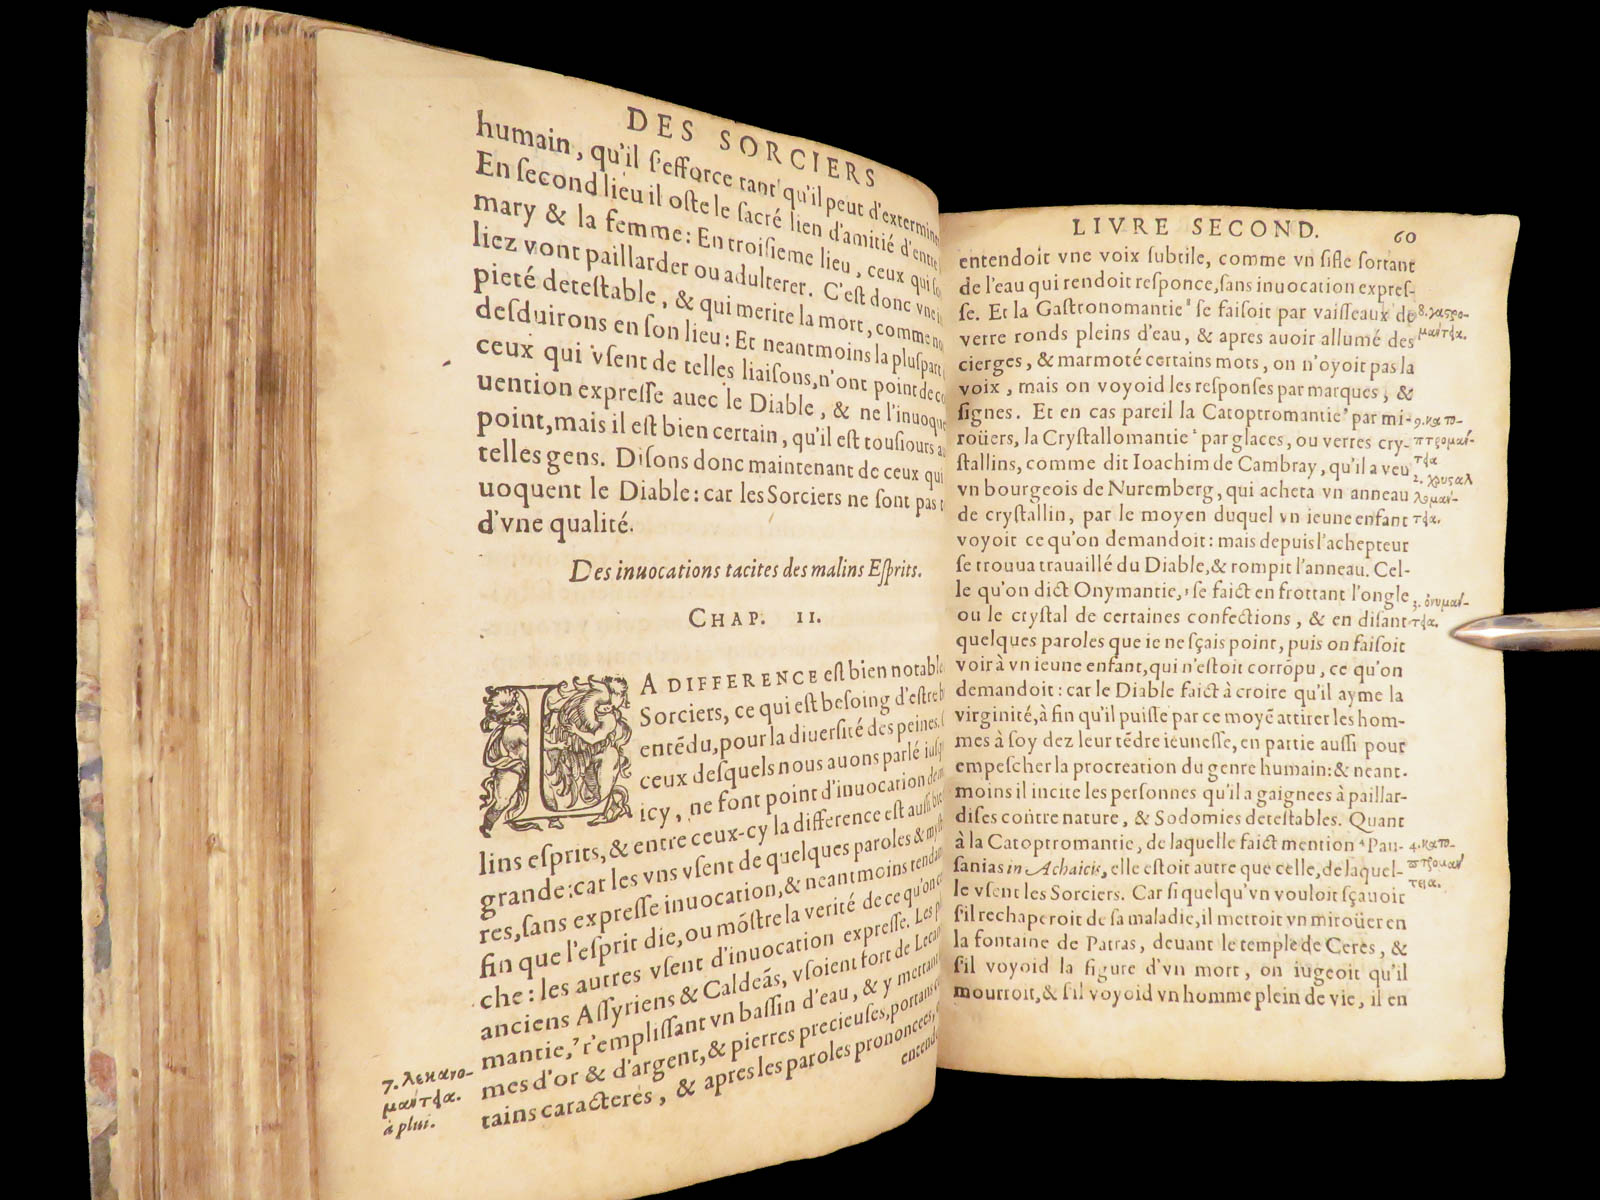 DES SORCIERS
humain, qu'il s'efforce tant qu'il peut d'extermine
En ſecond lieu il oſte le ſacré lien d'amitié d'entre
mary & la femme: En troiſieme lieu, ceux qui ſo
liez vont paillarder ou adulterer. C'eſt donc vne
pieté deteſtable, & qui merite la mort, comme no
deſduirons en ſon lieu: Et neantmoins la pluſpart
ceux qui vſent de telles liaiſons, n'ont point de co
uention expreſſe auec le Diable, & ne l'inuoque
point, mais il eſt bien certain, qu'il eſt touſiours a
telles gens. Diſons donc maintenant de ceux qui
uoquent le Diable: car les Sorciers ne ſont pas t
d'vne qualité.
Des inuocations tacites des malins Eſprits.
CHAP. II.
LA DIFFERENCE eſt bien notable
Sorciers, ce qui eſt beſoing d'eſtre b
entẽdu, pour la diuerſité des peines.
ceux deſquels nous auons parlé iuſq
icy, ne font point d'inuocation de ma
lins eſprits, & entre ceux-cy la difference eſt auſſi bie
grande: car les vns vſent de quelques paroles & myſt
res, ſans expreſſe inuocation, & neantmoins tendan
fin que l'eſprit die, ou mõſtre la verité de ce qu'on
che: les autres vſent d'inuocation expreſſe. Les
anciens Aſſyriens & Caldeãs, vſoient fort de Lecan
mantie,7 r'empliſſant vn baſſin d'eau, & y mettant
mes d'or & d'argent, & pierres precieuſes, portans
tains caracteres, & apres les paroles prononcees,
entend
7. λεκανο-
μαντεία.
à plui.
LIVRE SECOND. 60
entendoit vne voix ſubtile, comme vn ſifle ſortant
de l'eau qui rendoit reſponce, ſans inuocation expreſ-
ſe. Et la Gaſtronomantie8 ſe faiſoit par vaiſſeaux de
verre ronds pleins d'eau, & apres auoir allumé des
cierges, & marmoté certains mots, on n'oyoit pas la
voix, mais on voyoid les reſponſes par marques, &
ſignes. Et en cas pareil la Catoptromantie9 par mi-
roüers, la Cryſtallomantie2 par glaces, ou verres cry-
ſtallins, comme dit Ioachim de Cambray, qu'il a veu
vn bourgeois de Nuremberg, qui acheta vn anneau
de cryſtallin, par le moyen duquel vn ieune enfant
voyoit ce qu'on demandoit: mais depuis l'achepteur
ſe trouua trauaillé du Diable, & rompit l'anneau. Cel-
le qu'on dict Onymantie,3 ſe faict en frottant l'ongle
ou le cryſtal de certaines confections, & en diſant
quelques paroles que ie ne ſçais point, puis on faiſoit
voir à vn ieune enfant, qui n'eſtoit corrõpu, ce qu'on
demandoit: car le Diable faict à croire qu'il ayme la
virginité, à fin qu'il puiſſe par ce moyẽ attirer les hom-
mes à ſoy dez leur tẽdre ieuneſſe, en partie auſſi pour
empeſcher la procreation du genre humain: & neant-
moins il incite les perſonnes qu'il a gaignees à paillar-
diſes contre nature, & Sodomies deteſtables. Quant
à la Catoptromantie, de laquelle faict mention 4 Pau-
ſanias in Achaicis, elle eſtoit autre que celle, de laquel-
le vſent les Sorciers. Car ſi quelqu'vn vouloit ſçauoir
s'il rechaperoit de ſa maladie, il mettoit vn miroüer en
la fontaine de Patras, deuant le temple de Ceres, &
s'il voyoid la figure d'vn mort, on iugeoit qu'il
mourroit, & s'il voyoid vn homme plein de vie, il en
8. γαστρο-
μαντεία.
9. κατο-
πτρομαν-
τεία
2. χρυσαλ
λομαν-
τεία.
3. ὀνυμαν-
τεία.
4. κατο-
πτρομαν
τεια.